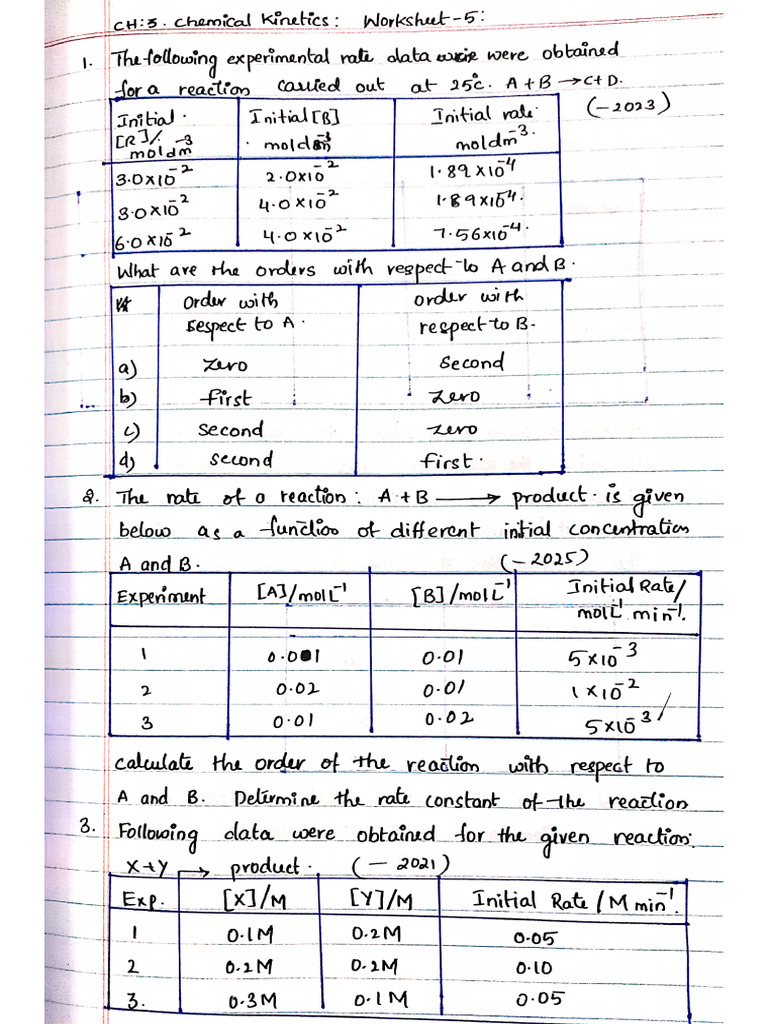 CH:3. Chemical Kinetics: Worksheet-5:
1. The following experimental rate data were were obtained
for a reaction carried out at 25°c. A+B →C+D.
(-2023)
Initial [R]/ moldm⁻³ Initial [B] moldm⁻³ Initial rate moldm⁻³.
3.0×10⁻² 2.0×10⁻² 1.89×10⁻⁴
3.0×10⁻² 4.0×10⁻² 1.89×10⁻⁴.
6.0×10⁻² 4.0×10⁻² 7.56×10⁻⁴.
What are the orders with respect to A and B.
Order with respect to A. order with respect to B.
a) zero second
b) first zero
c) second zero
d) second first.
2. The rate of a reaction: A+B ⟶ product is given
below as a function of different initial concentration
A and B. (-2025)
Experiment [A]/molL⁻¹ [B]/molL⁻¹ Initial Rate/ molL⁻¹ min⁻¹.
1 0.01 0.01 5×10⁻³
2 0.02 0.01 1×10⁻²
3 0.01 0.02 5×10⁻³
calculate the order of the reaction with respect to
A and B. Determine the rate constant of the reaction
3. Following data were obtained for the given reaction:
X+Y → product. (- 2021)
Exp. [X]/M [Y]/M Initial Rate/M min⁻¹.
1 0.1M 0.2M 0.05
2 0.2M 0.2M 0.10
3. 0.3M 0.1M 0.05